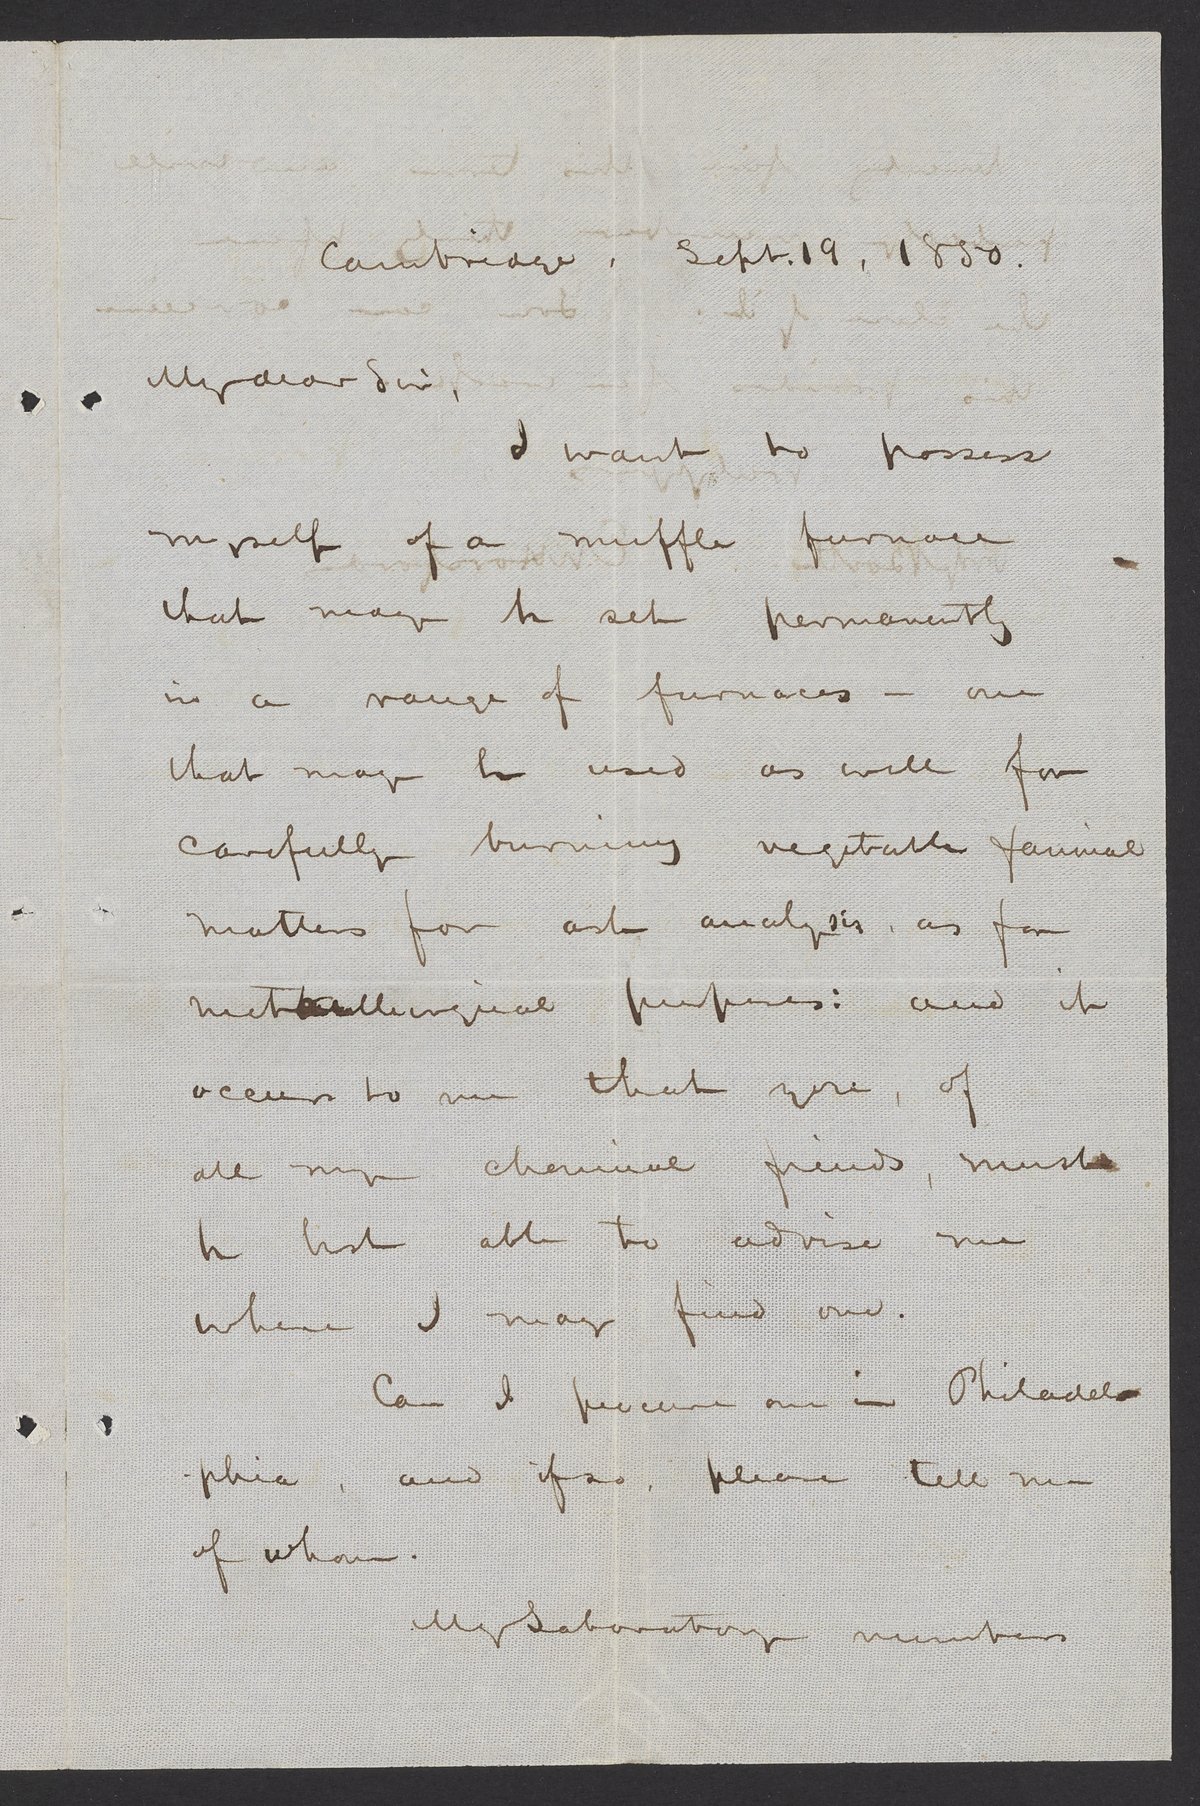 Cambridge, Sept. 19, 1850.
My dear Sir,
I want to possess
myself of a muffle furnace
that may be set permanently
in a range of furnaces - one
that may be used as well for
carefully burning vegetable & animal
matters for ash analysis, as for
metallurgical purposes: and it
occurs to me that you, of
all my chemical friends, must
be best able to advise me
where I may find one.
Can I procure one in Philadel-
-phia, and if so, please tell me
of whom.
My Laboratory numbers